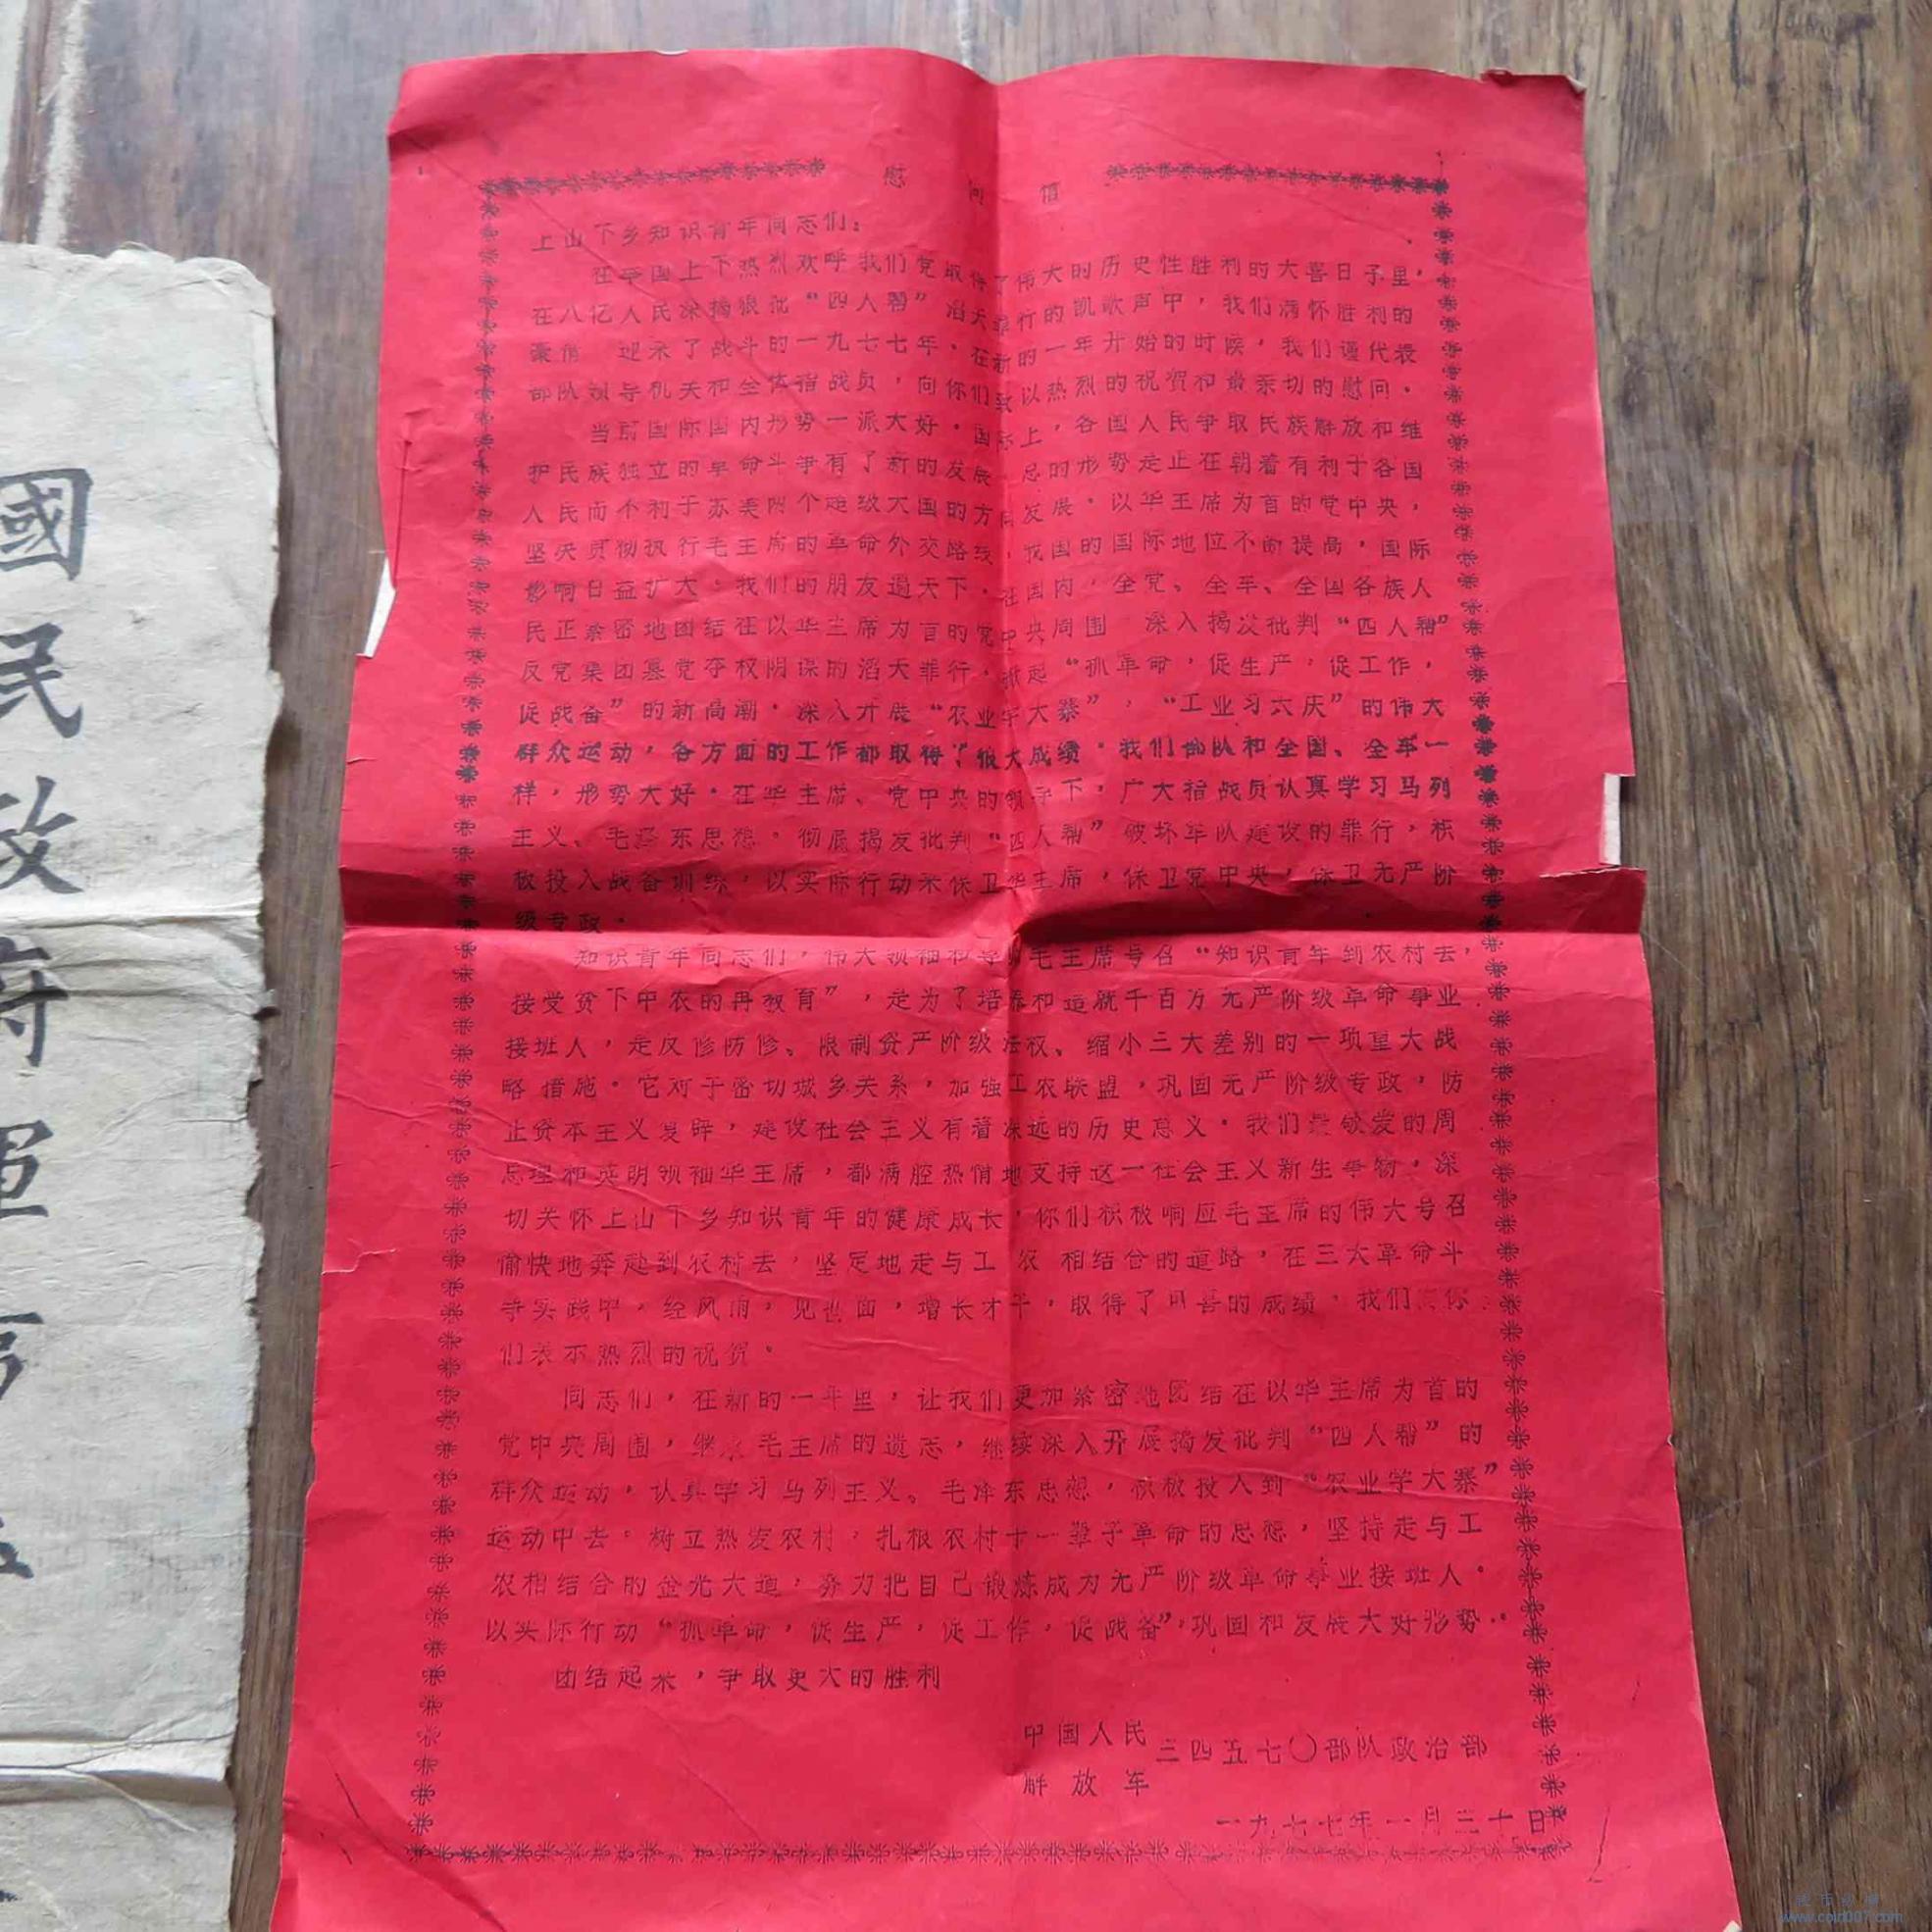 國
民
政
府
軍
慰问信
上山下乡知识青年同志们：
在举国上下热烈欢呼我们党取得了伟大的历史性胜利的大喜日子里，
在八亿人民深揭狠批“四人帮”滔天罪行的凯歌声中，我们满怀胜利的
豪情 迎来了战斗的一九七七年。在新的一年开始的时候，我们谨代表
部队领导机关和全体指战员，向你们致以热烈的祝贺和最亲切的慰问。
当前国际国内形势一派大好。国际上，各国人民争取民族解放和维
护民族独立的革命斗争有了新的发展 总的形势是正在朝着有利于各国
人民而不利于苏美两个超级大国的方向发展。以华主席为首的党中央，
坚决贯彻执行毛主席的革命外交路线，我国的国际地位不断提高，国际
影响日益扩大，我们的朋友遍天下。在国内，全党、全军、全国各族人
民正紧密地团结在以华主席为首的党中央周围 深入揭发批判“四人帮”
反党集团篡党夺权阴谋的滔天罪行，掀起“抓革命，促生产，促工作，
促战备”的新高潮。深入开展“农业学大寨”，“工业习大庆”的伟大
群众运动，各方面的工作都取得了很大成绩。我们部队和全国、全军一
样，形势大好。在华主席、党中央的领导下，广大指战员认真学习马列
主义、毛泽东思想。彻底揭发批判“四人帮”破坏军队建设的罪行，积
极投入战备训练，以实际行动来保卫华主席，保卫党中央，保卫无产阶
级专政。
知识青年同志们，伟大领袖和导师毛主席号召“知识青年到农村去，
接受贫下中农的再教育”，是为了培养和造就千百万无产阶级革命事业
接班人，是反修防修、限制资产阶级法权、缩小三大差别的一项重大战
略措施。它对于密切城乡关系，加强工农联盟，巩固无产阶级专政，防
止资本主义复辟，建设社会主义有着深远的历史意义。我们最敬爱的周
总理和英明领袖华主席，都满腔热情地支持这一社会主义新生事物，深
切关怀上山下乡知识青年的健康成长，你们积极响应毛主席的伟大号召
愉快地奔赴到农村去，坚定地走与工 农 相结合的道路，在三大革命斗
争实践中，经风雨，见世面，增长才干，取得了可喜的成绩，我们 你
们表示热烈的祝贺。
同志们，在新的一年里，让我们更加紧密地团结在以华主席为首的
党中央周围，继承毛主席的遗志，继续深入开展揭发批判“四人帮”的
群众运动，认真学习马列主义、毛泽东思想，积极投入到“农业学大寨”
运动中去。树立热爱农村，扎根农村干一辈子革命的思想，坚持走与工
农相结合的金光大道，努力把自己锻炼成为无产阶级革命事业接班人。
以实际行动“抓革命，促生产，促工作，促战备”，巩固和发展大好形势。
团结起来，争取更大的胜利
中国人民
解放军 三四五七〇部队政治部
一九七七年一月三十日
www.coin007.com